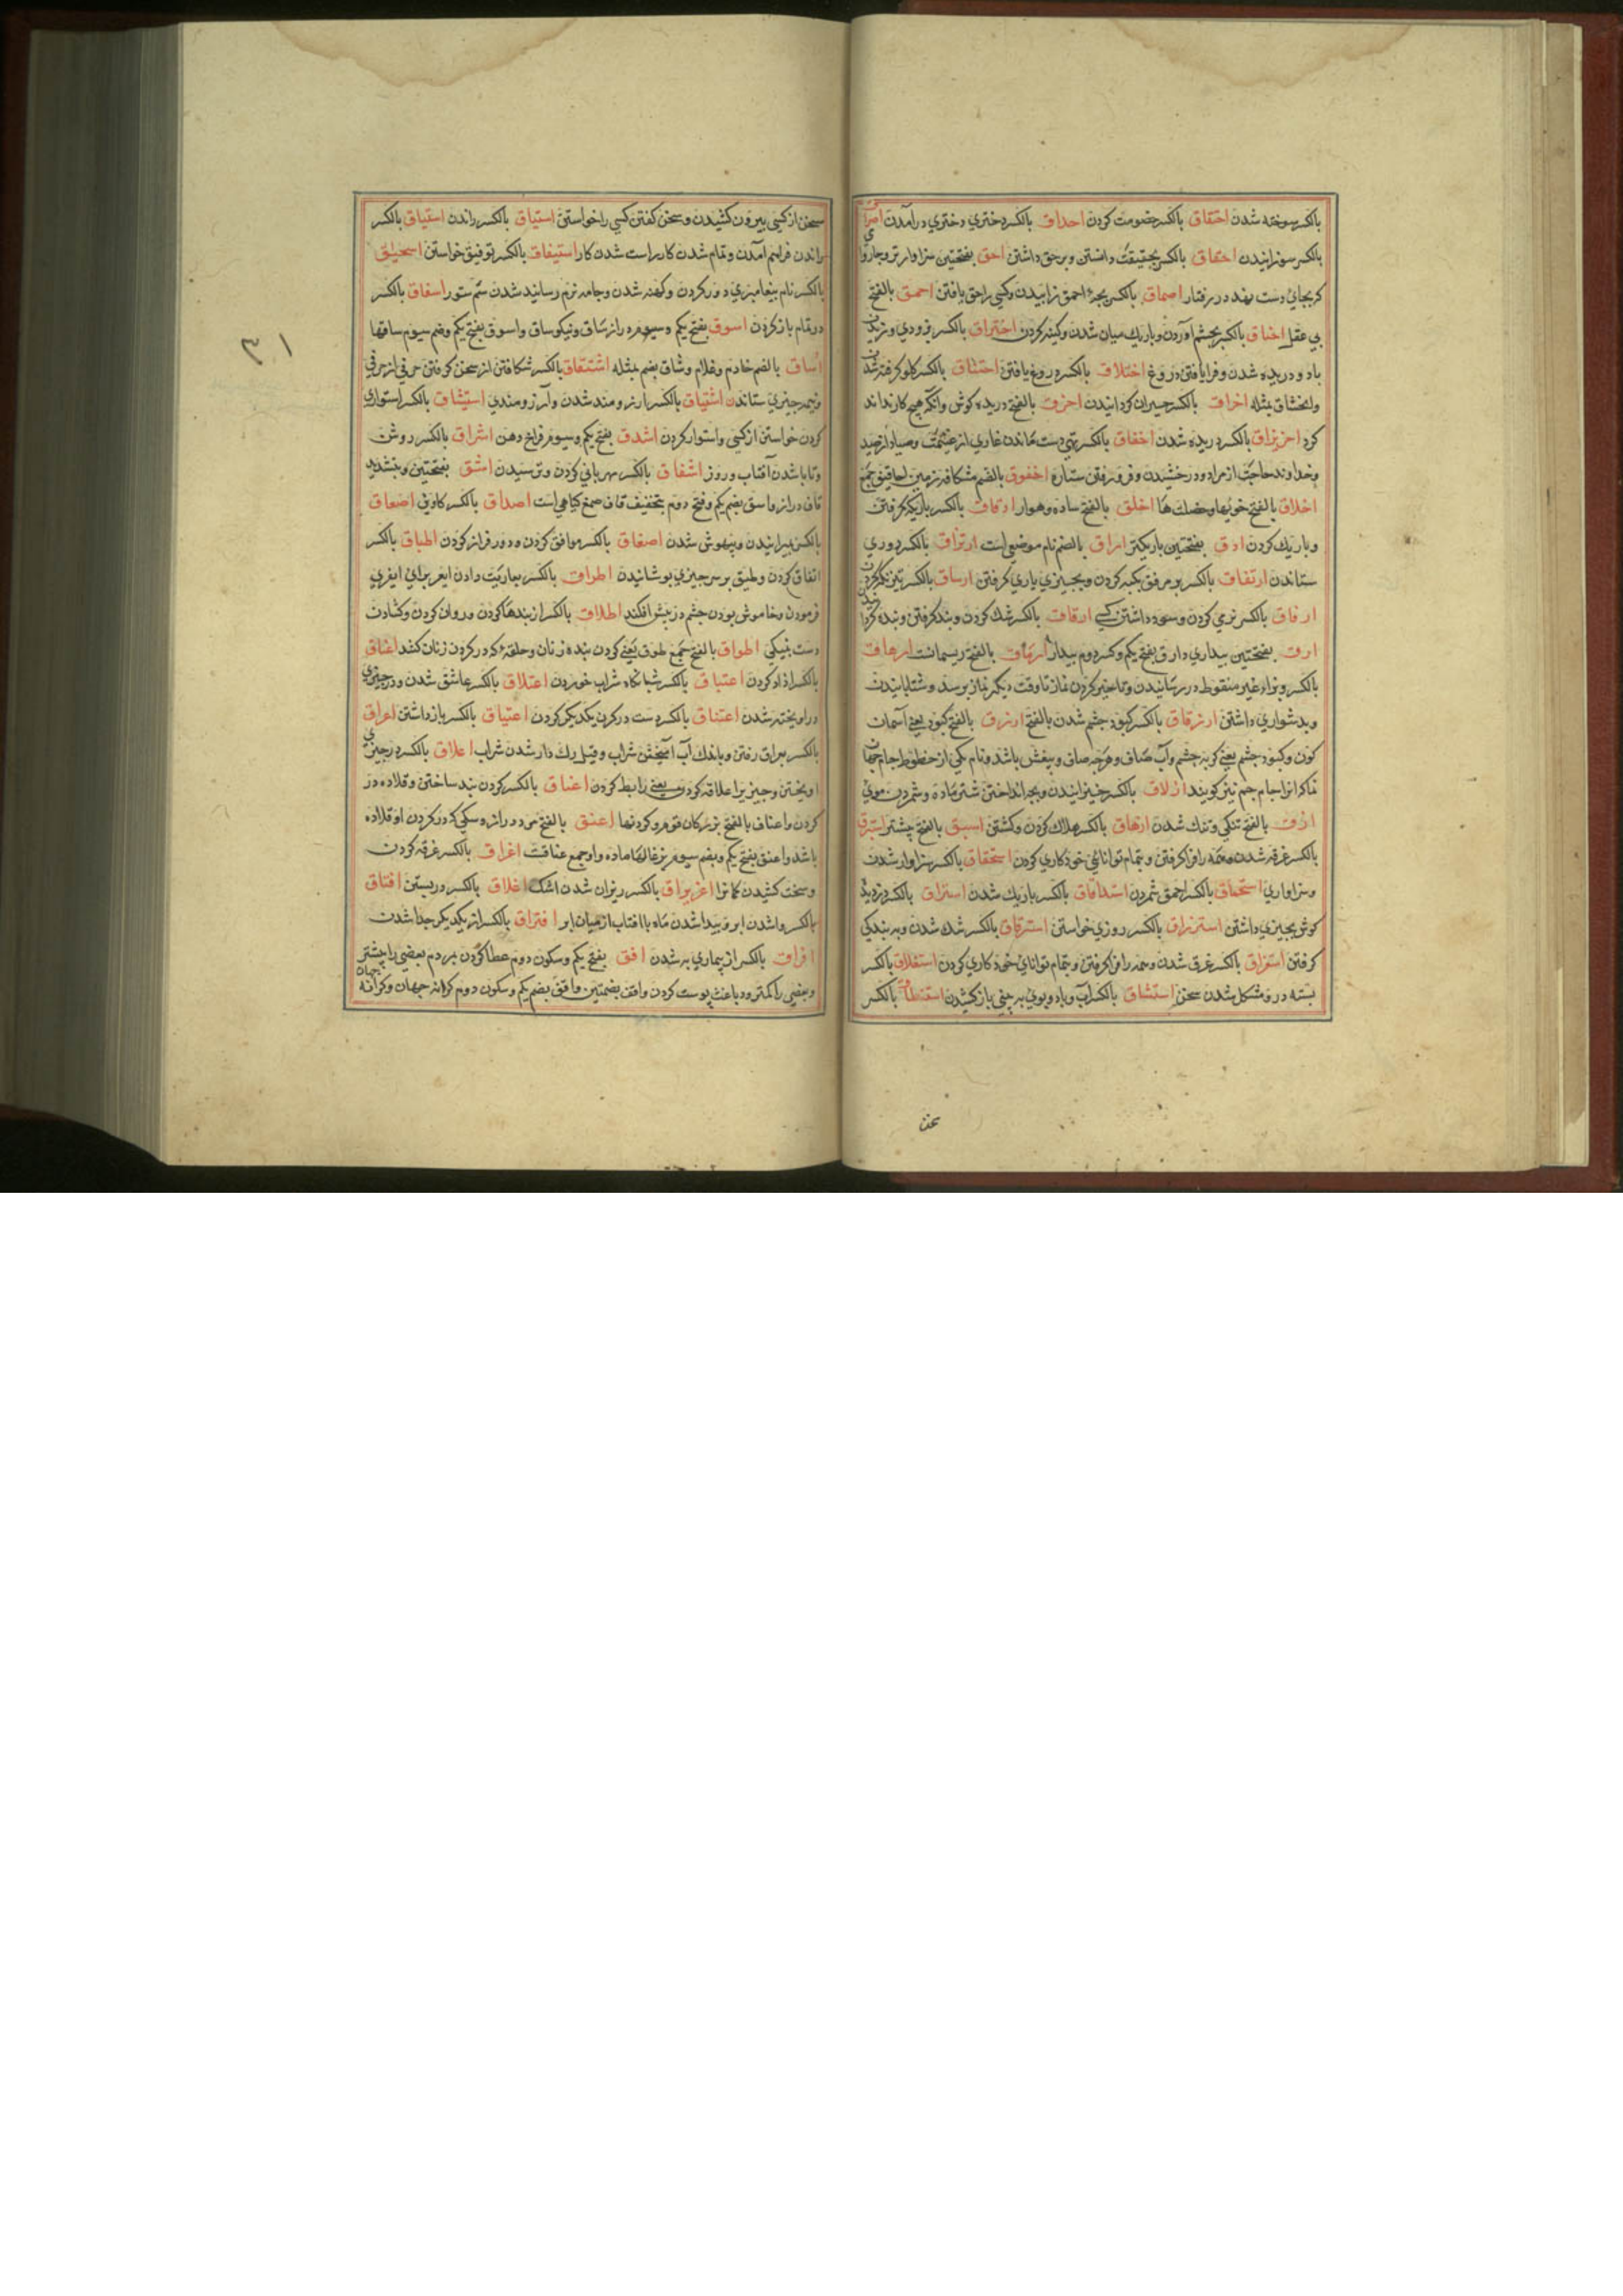 بالکسر سوخته شدن احتقاق بالکسر خصومت کردن احداق بالکسر دختری دختری درآمدن احراق
بالکسر سوزانیدن احقاق بالکسر بحقیقت دانستن و بر حق داشتن احق بفتحتین سزاوارتر و
کر بجای دست نهد در رفتار احماق بالکسر بچهٔ احمق زاییدن و کسی را احمق یافتن احمق بالفتح
بی عقل احناق بالکسر بخشم آوردن و باریک میان شدن و کینه کردن اختراق بالکسر
باد و دریده شدن و فرا یافتن دروغ اختلاق بالکسر دروغ یافتن اختناق بالکسر گلو گرفته شدن
وانخناق مثله اخراق بالکسر حیران گردانیدن اخرق بالفتح دریده گوش و آنکه هیچ کار نداند
کرد اخریراق بالکسر دریده شدن اخفاق بالکسر تهی دست ماندن غازی از غنیمت و صیاد از صید
وخداوند حاجت از مراد و درخشیدن و فرو رفتن ستاره اخفوق بالضم شکافه زمین اخافیق جمع
اخلاق بالفتح خویها و خصلت ها اخلق بالفتح ساده و هموار ادقاق بالکسر باریک گرفتن
و باریک کردن ادق بفتحتین باریکتر اراق بالضم نام موضعی است ارتزاق بالکسر روزی
ستاندن ارتفاق بالکسر بر مرفق تکیه کردن و بچیزی یاری گرفتن ارشاق بالکسر تیز نگه کردن
ارفاق بالکسر نرمی کردن و سود داشتن کسی ارقاق بالکسر تنک کردن و بند گرفتن و بنده کردن
ارق بفتحتین بیداری و ارق بفتح یکم و کسر دوم بیدار ارماق بالفتح ریسمانست ارهاق
بالکسر و براء غیر منقوط در رسانیدن و تاخیر کردن نماز تا وقت دیگر نماز برسد و شتابانیدن
و بدشواری داشتن ازرقاق بالکسر کبود چشم شدن بالفتح ازرق بالفتح کبود یعنی آسمان
گون و کبود چشم یعنی گربه چشم و آب صاف و هرچه صاف و بیغش باشد و نام یکی از خطوط جام جهان
نما که آنرا جام جم نیز گویند ازلاق بالکسر خیزانیدن و بچه انداختن شتر ماده و ستردن موی
ازق بالفتح تنگی و تنک شدن ازهاق بالکسر هلاک کردن و کشتن اسبق بالفتح پیشتر استبرق
بالکسر غرقه شدن و همه را فرا گرفتن و بتمام توانائی خود کاری کردن استحقاق بالکسر سزاوار شدن
و سزاواری استحماق بالکسر احمق شمردن استدقاق بالکسر باریک شدن استراق بالکسر دزدیده
گوش بچیزی داشتن استرزاق بالکسر روزی خواستن استرقاق بالکسر تنک شدن و به بندگی
گرفتن استغراق بالکسر غرق شدن و همه را فرا گرفتن و بتمام توانای خود کاری کردن استغلاق بالکسر
بسته در و مشکل شدن سخن استنشاق بالکسر آب و باد و بوی به بینی باز کشیدن استنطاق بالکسر
سخن از کسی بیرون کشیدن و سخن گفتن کسی را خواستن استیاق بالکسر راندن استیاق بالکسر
راندن فراهم آمدن و تمام شدن کار راست شدن کار استیفاق بالکسر توفیق خواستن اسحیاق
بالکسر نام پیغامبری دور کردن و کهنه شدن و جامه نرم رسانید شدن سم ستور اسفاق بالکسر
در تمام باز کردن اسوق بفتح یکم و سیوم دراز ساق و نیکو ساق و اسوق بفتح یکم و ضم سیوم ساقها
اشاق بالضم خادم و غلام و شاق بضم مثله اشتقاق بالکسر شکافتن از سخن گرفتن حرفی از حرفی
و نیمه چیزی ستاندن اشتیاق بالکسر آرزومند شدن و آرزومندی استیثاق بالکسر استواری
کردن خواستن از کسی و استوار کردن اشدق بفتح یکم و سیوم فراخ دهن اشراق بالکسر روشن
و تابا شدن آفتاب و روز اشفاق بالکسر مهربانی کردن و ترسیدن اشق بفتحتین و بتشدید
قاف دراز و اشق بضم یکم و فتح دوم بتخفیف قاف صمغ گیاهی است اصداق بالکسر کاوین اصعاق
بالکسر میرانیدن و بیهوش شدن اصفاق بالکسر موافق کردن و در فراز کردن اطباق بالکسر
اتفاق کردن و طبق بر سر چیزی پوشانیدن اطراق بالکسر بعاریت دادن
فرمودن و خاموش بودن چشم در پیش افکند اطلاق بالکسر از بندها کردن و روان کردن و گشادن
دست بنیکی اطواق بالفتح جمع طوق یعنی گردن بنده زنان و حلقه که در گردن زنان کنند اعتاق
بالکسر آزاد کردن اعتباق بالکسر شبانگاه شراب خوردن اعتلاق بالکسر عاشق شدن و در چیزی
در آویخته شدن اعتناق بالکسر دست در گردن یکدیگر کردن اعتیاق بالکسر باز داشتن اعراق
بالکسر بعراق رفتن و باندک آب آمیختن شراب و قیل رگ دار شدن شراب اعلاق بالکسر در چیزی
آویختن و چیزی را علاقه کردن یعنی رابط کردن اعناق بالکسر گردن بند ساختن و قلاده در
گردن و اعناق بالفتح بزرگان قوم و گردنها اعنق بالفتح مرد دراز و سگی که در گردن او قلاده
باشد و اعنق بفتح یکم و بضم سیوم بزغالها ماده و او جمع عناقت اغراق بالکسر غرقه کردن
و سخت کشیدن کمانرا اغریراق بالکسر ریزان شدن اشک اغلاق بالکسر در بستن افتاق
بالکسر وا شدن ابر و پیدا شدن ماه با آفتاب از میان ابر افتراق بالکسر از یکدیگر جدا شدن
افراق بالکسر از بیماری به شدن افق بفتح یکم و سکون دوم عطا کردن مردم بعضی را بیشتر
و بعضی را کمتر و دباغت پوست کردن و افق بضمتین و افق بضم یکم و سکون دوم کرانه جهان و کرانه
سخن